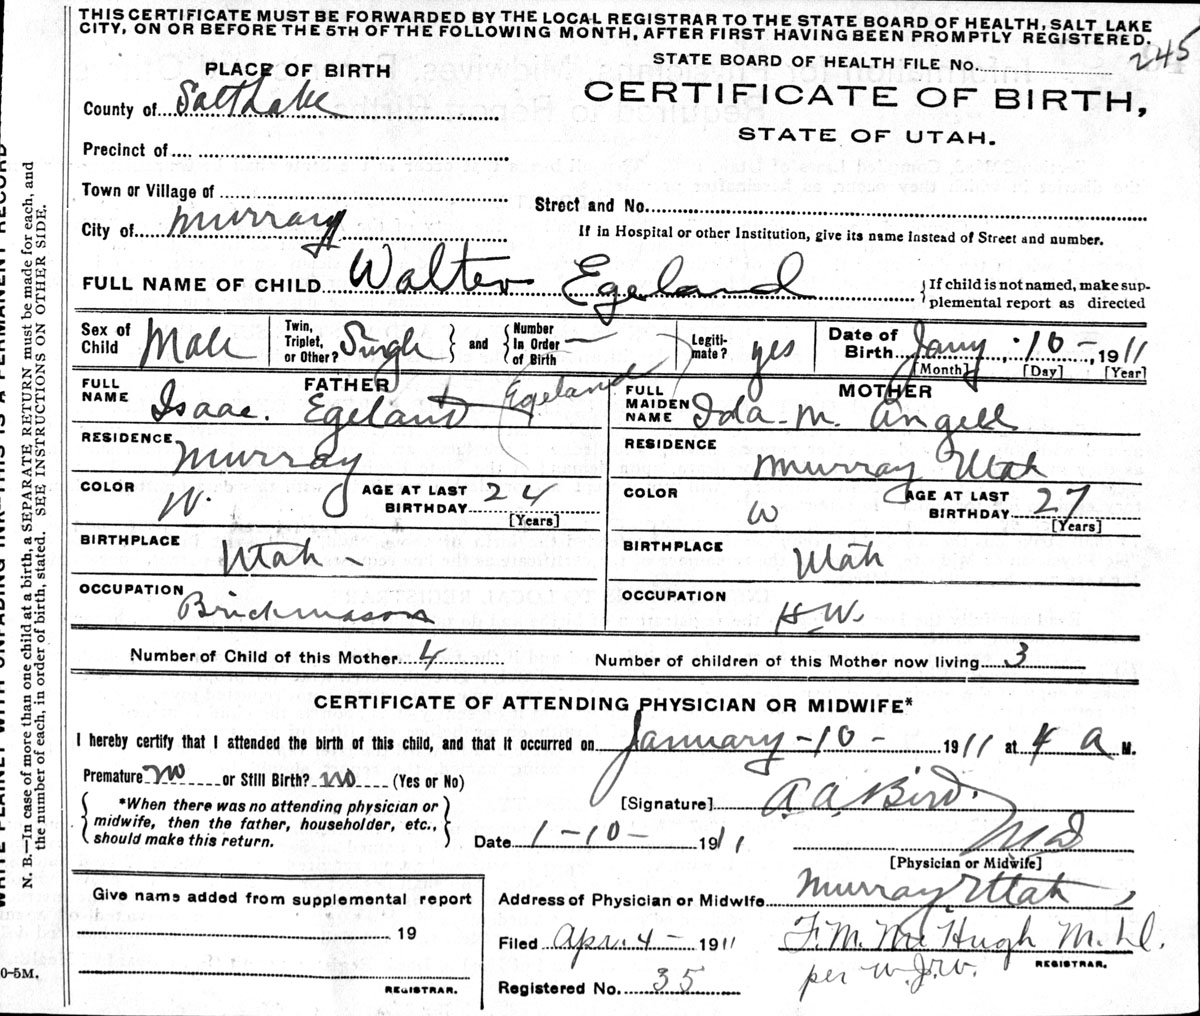 THIS CERTIFICATE MUST BE FORWARDED BY THE LOCAL REGISTRAR TO THE STATE BOARD OF HEALTH, SALT LAKE
CITY, ON OR BEFORE THE 5TH OF THE FOLLOWING MONTH, AFTER FIRST HAVING BEEN PROMPTLY REGISTERED.
PLACE OF BIRTH
STATE BOARD OF HEALTH FILE NO. 245
County of Salt Lake
CERTIFICATE OF BIRTH,
STATE OF UTAH.
Precinct of
Town or Village of
Street and No.
City of Murray
If in Hospital or other Institution, give its name instead of Street and number.
FULL NAME OF CHILD Walter Egeland
If child is not named, make sup-
plemental report as directed
Sex of Child Male
Twin, Triplet, or Other? Singl
and
Number In Order of Birth —
Legiti-mate? yes
Date of Birth Jany. 10 - 1911
[Month] [Day] [Year]
FATHER
FULL NAME Isaac. Egeland
Egeland
RESIDENCE Murray
COLOR W.
AGE AT LAST BIRTHDAY 24
[Years]
BIRTHPLACE Utah -
OCCUPATION Brickmason
MOTHER
FULL MAIDEN NAME Ida. M. Angell
RESIDENCE Murray Utah
COLOR W
AGE AT LAST BIRTHDAY 27
[Years]
BIRTHPLACE Utah
OCCUPATION H.W.
Number of Child of this Mother 4
Number of children of this Mother now living 3
CERTIFICATE OF ATTENDING PHYSICIAN OR MIDWIFE*
I hereby certify that I attended the birth of this child, and that it occurred on January - 10 - 1911 at 4 a M.
Premature no or Still Birth? no (Yes or No)
*When there was no attending physician or
midwife, then the father, householder, etc.,
should make this return.
[Signature] A. A. Bird.
Date 1 - 10 - 1911
MD
[Physician or Midwife]
Give name added from supplemental report
19
REGISTRAR.
Address of Physician or Midwife Murray Utah
Filed Apr. 4 - 1911
F. M. McHugh M.D.
REGISTRAR.
per W.J.W.
Registered No. 35
N. B.—In case of more than one child at a birth, a SEPARATE RETURN must be made for each, and
the number of each, in order of birth, stated. SEE INSTRUCTIONS ON OTHER SIDE.
WRITE PLAINLY WITH UNFADING INK—THIS IS A PERMANENT RECORD
0-5M.